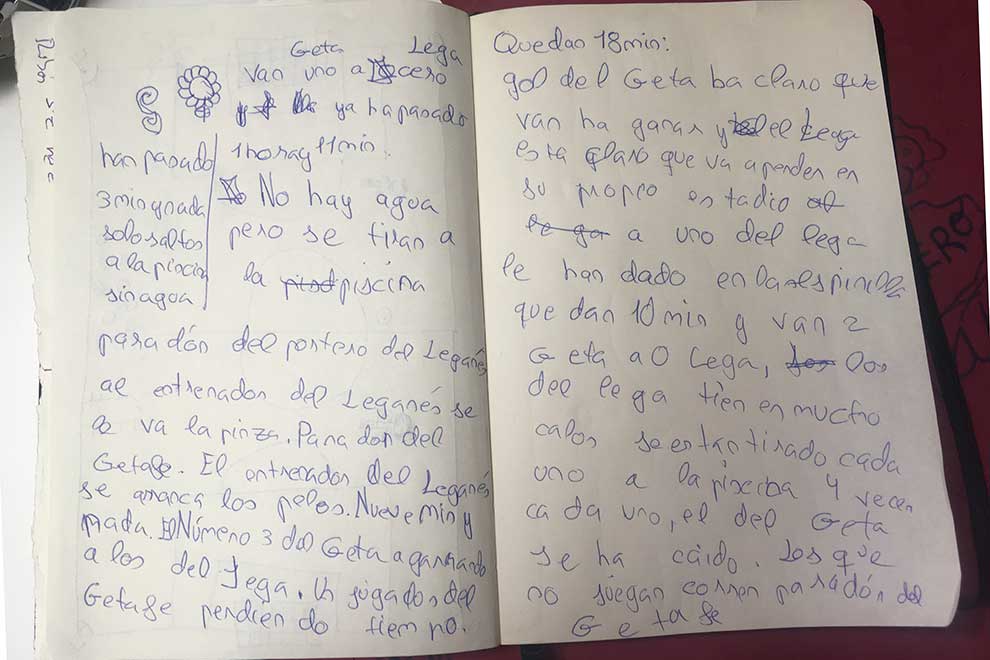 Geta Lega
van uno a cero
ya ha pasado
1 hora y 11 min.
han pasado
3 min y nada
solo saltos
a la piscina
sin agua
No hay agua
pero se tiran a
la pisd piscina
paradón del portero del Leganés
al entrenador del Leganés se
le va la pinza. Paradon del
Getafe. El entrenador del Leganés
se arranca los pelos. Nueve min y
nada. El Número 3 del Geta agarrando
a los del Lega. Un jugador del
Getafe perdiendo tiempo.
Quedan 18 min:
gol del Geta ba claro que
van ha ganar y el Lega
esta claro que va a perder en
su propio estadio al
le ga a uno del lega
le han dado en la espinilla
quedan 10 min y van 2
Geta a 0 Lega, los
del lega tienen mucho
calor se estan tirado cada
uno a la pisciba 4 veces
cada uno, el del Geta
se ha caido. Los que
no juegan corren paradón del
Getafe